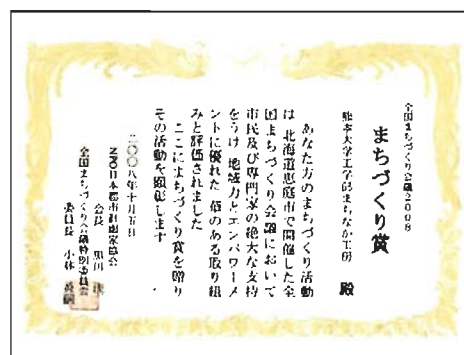 全国まちづくり会議2008
まちづくり賞
熊本大学工学部まちなか工房 殿
あなた方のまちづくり活動
は 北海道恵庭市で開催した全
国まちづくり会議において
市民及び専門家の絶大な支持
をうけ 地域力とエンパワーメ
ントに優れた 華のある取り組
みと評価されました
ここにまちづくり賞を贈り
その活動を顕彰します
二〇〇八年十月五日
NPO日本都市計画家協会
会長 黒川
全国まちづくり会議特別委員会
委員長 小林 英嗣